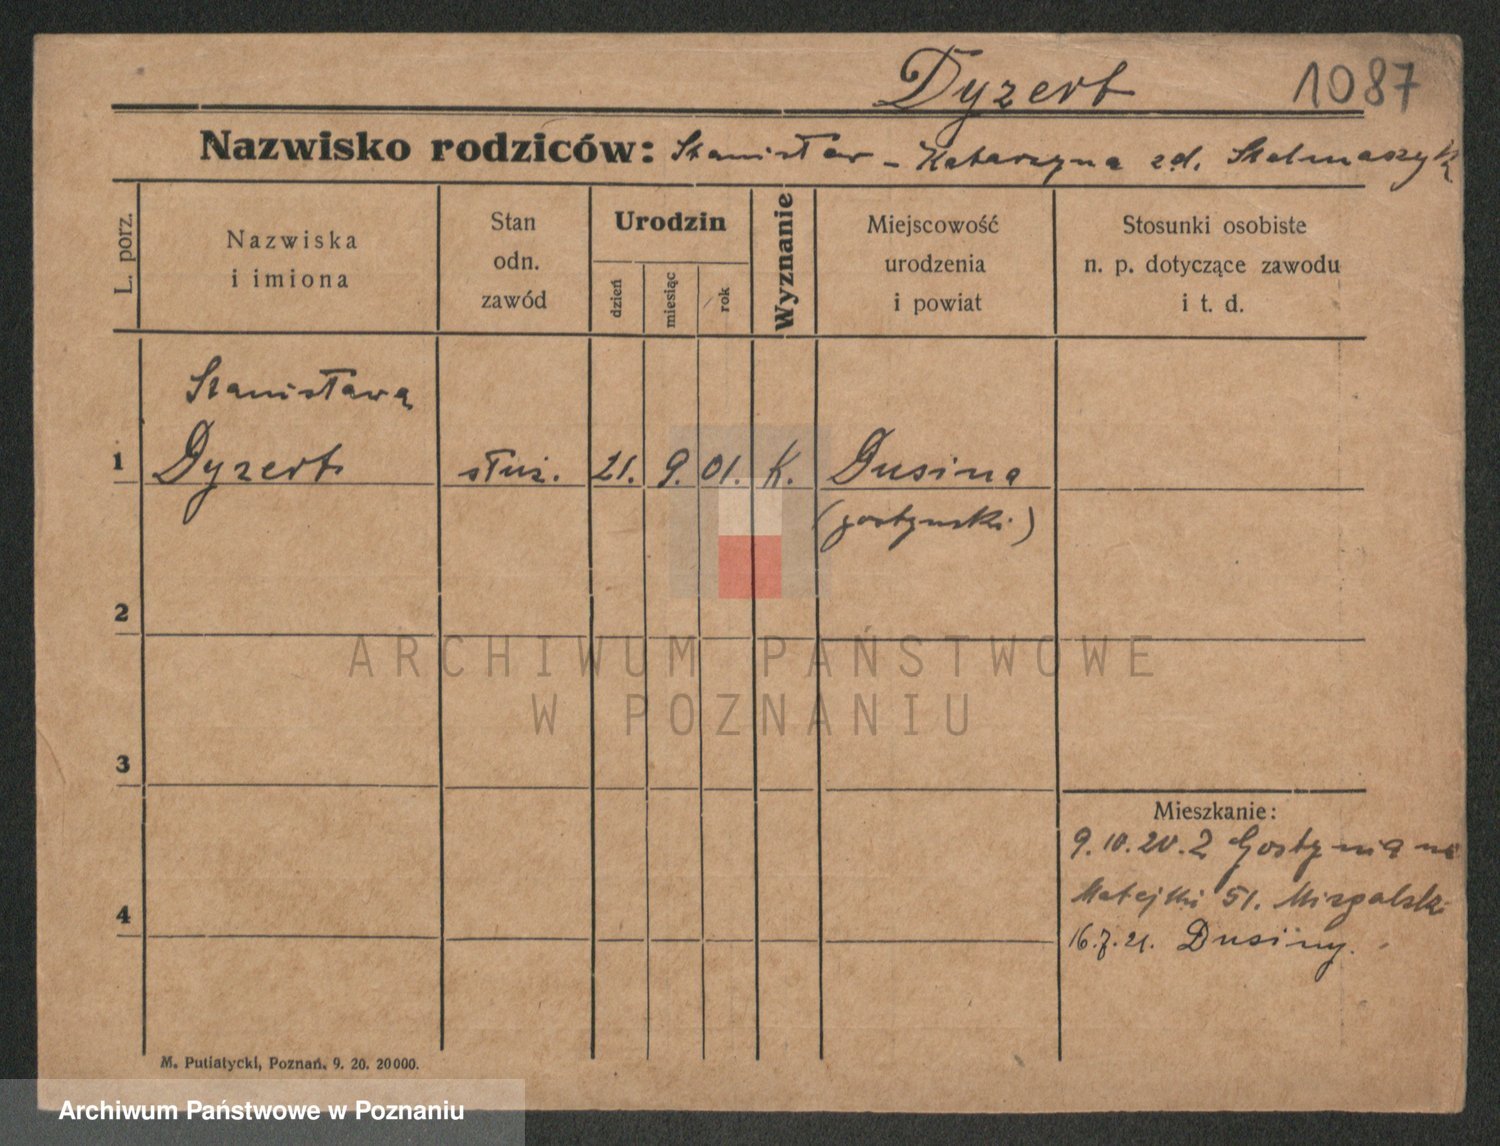 Dyzert 1087
Nazwisko rodziców: Stanisław - Katarzyna zd. Stelmaszyk
L. porz.
Nazwiska
i imiona
Stan
odn.
zawód
Urodzin
dzień
miesiąc
rok
Wyznanie
Miejscowość
urodzenia
i powiat
Stosunki osobiste
n. p. dotyczące zawodu
i t. d.
Stanisława
1 Dyzert służ. 21. 9. 01. K. Dusina
(gostynski)
2
3
4
ARCHIWUM PAŃSTWOWE
W POZNANIU
Mieszkanie:
9.10.20. Z Gostynia na
Matejki 51. Mizgalski
16.7.21. Dusiny.
M. Putiatycki, Poznań. 9. 20. 20000.
Archiwum Państwowe w Poznaniu